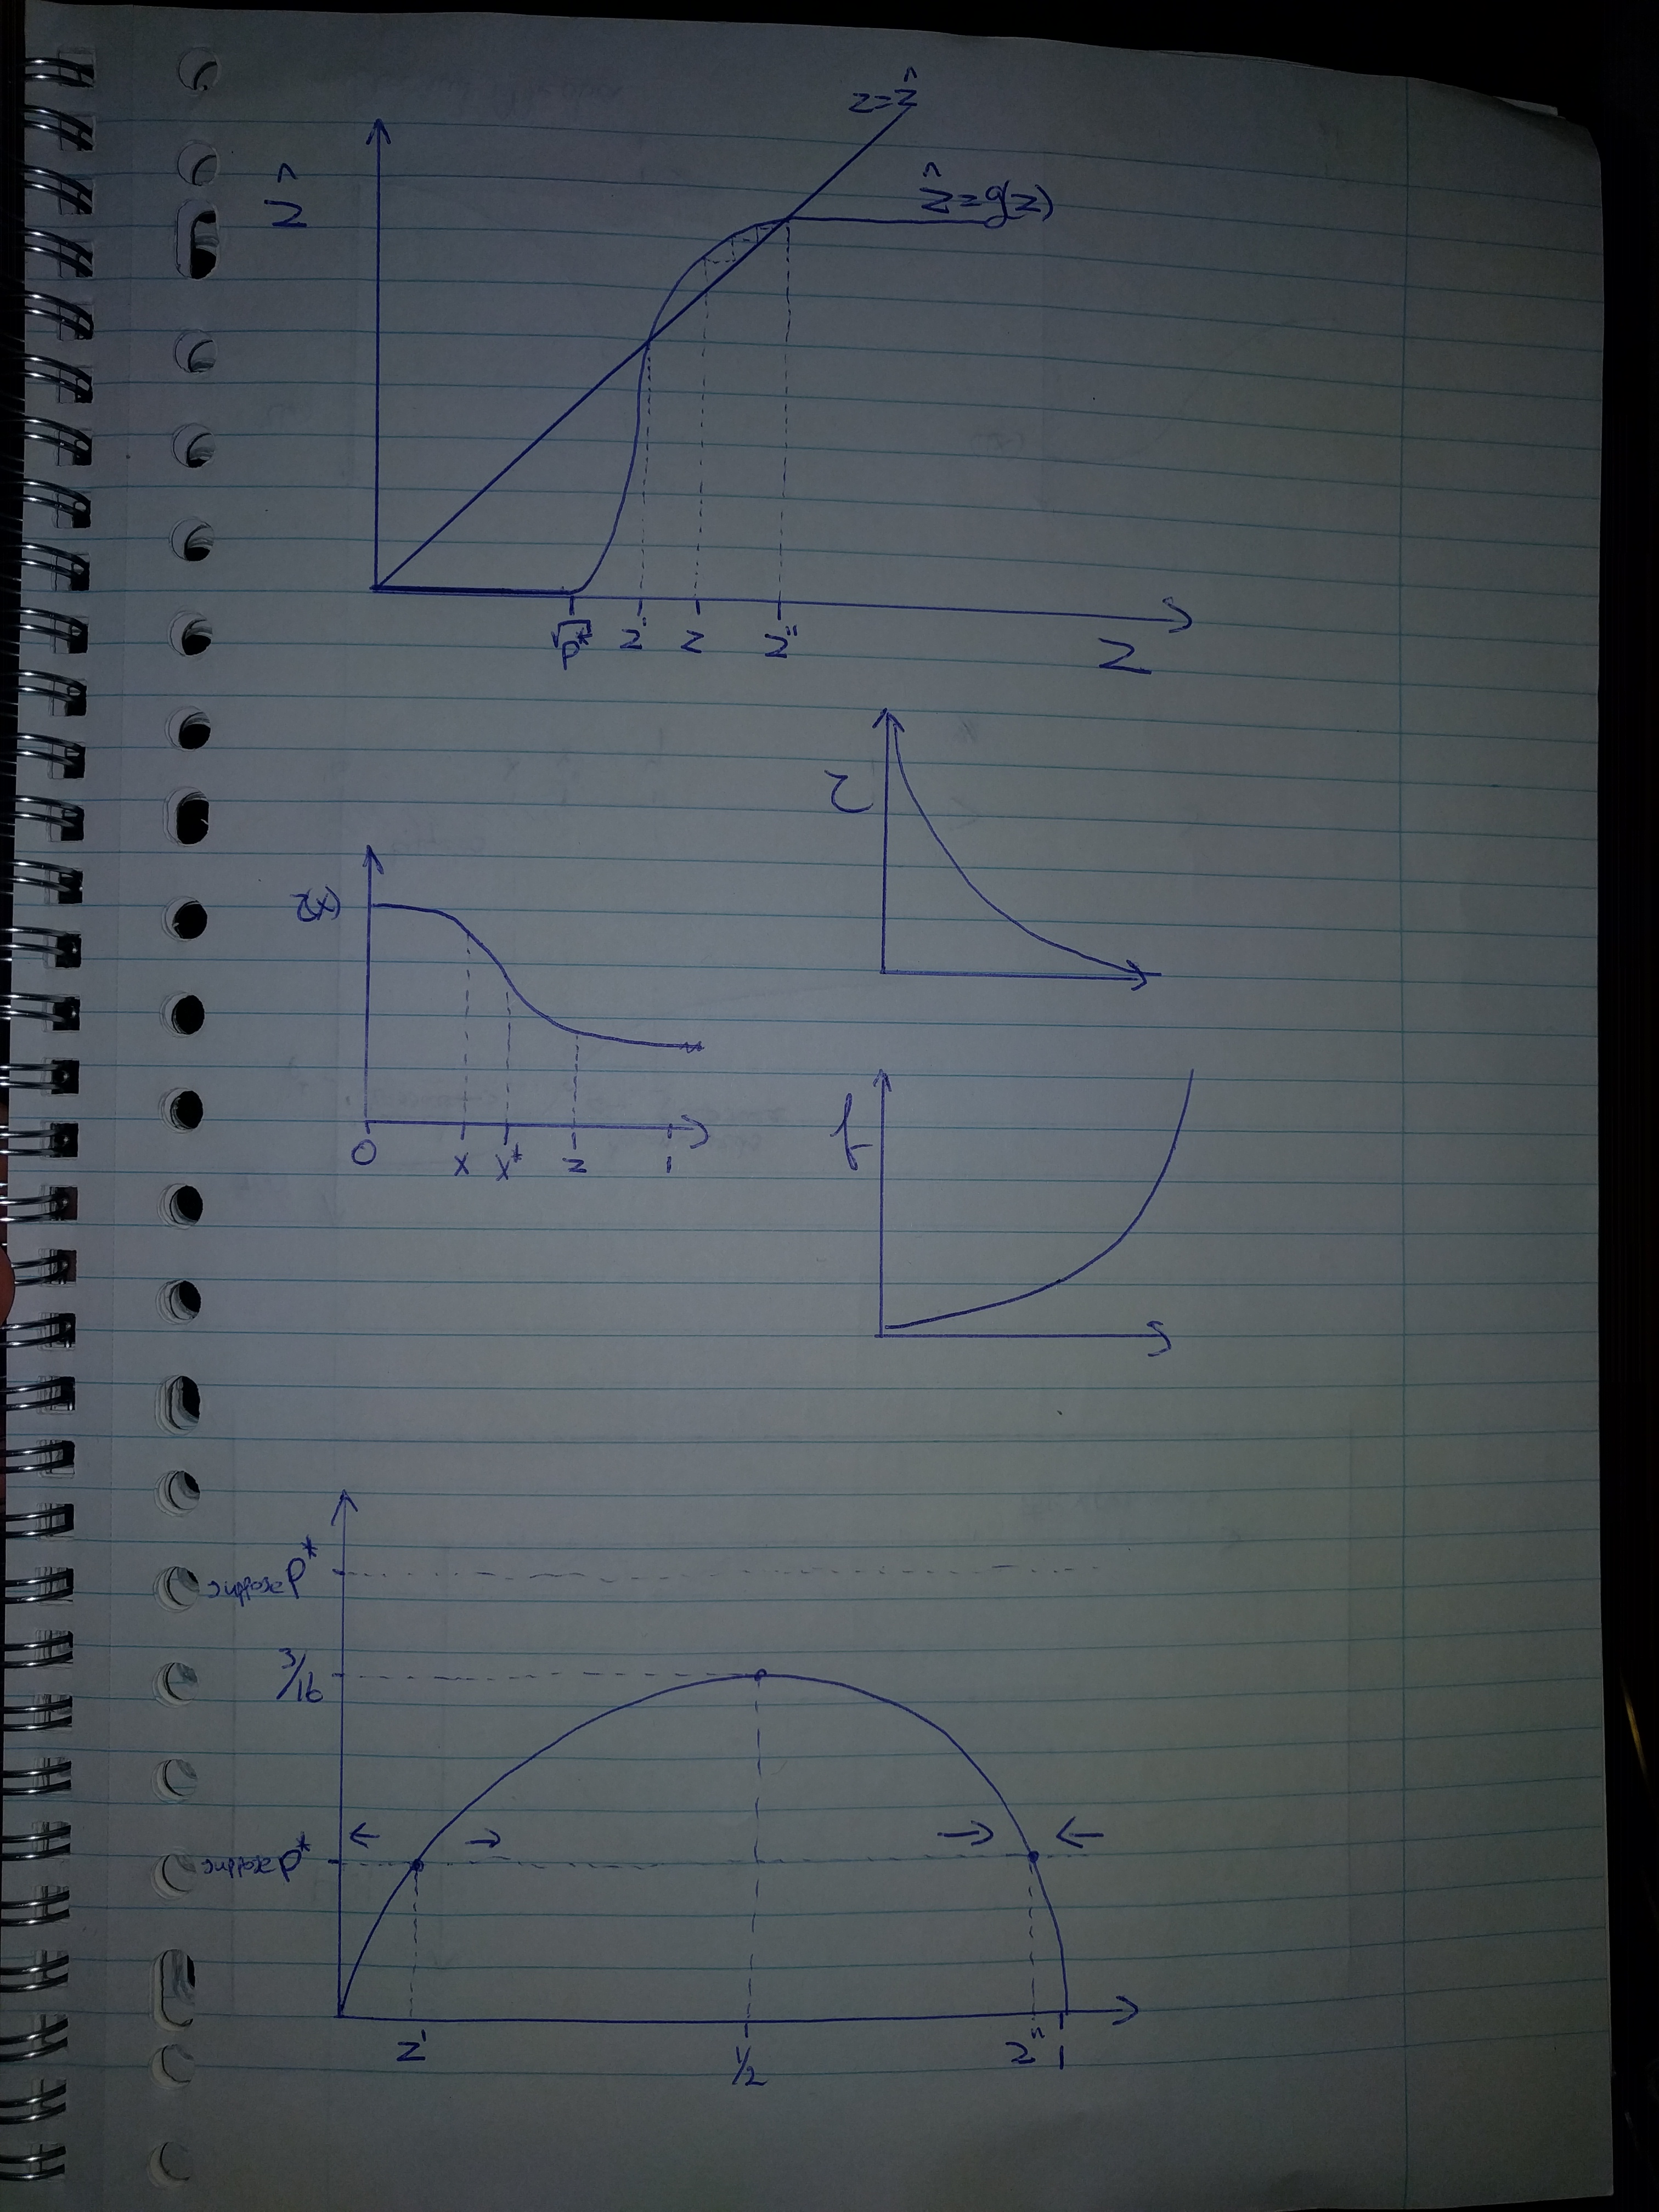 z=ẑ
ẑ
ẑ=g(z)
√p* z' z z"
z
r(x)
0 x x* z 1
f
suppose p*
3/16
suppose p*
z' 1/2 z" 1